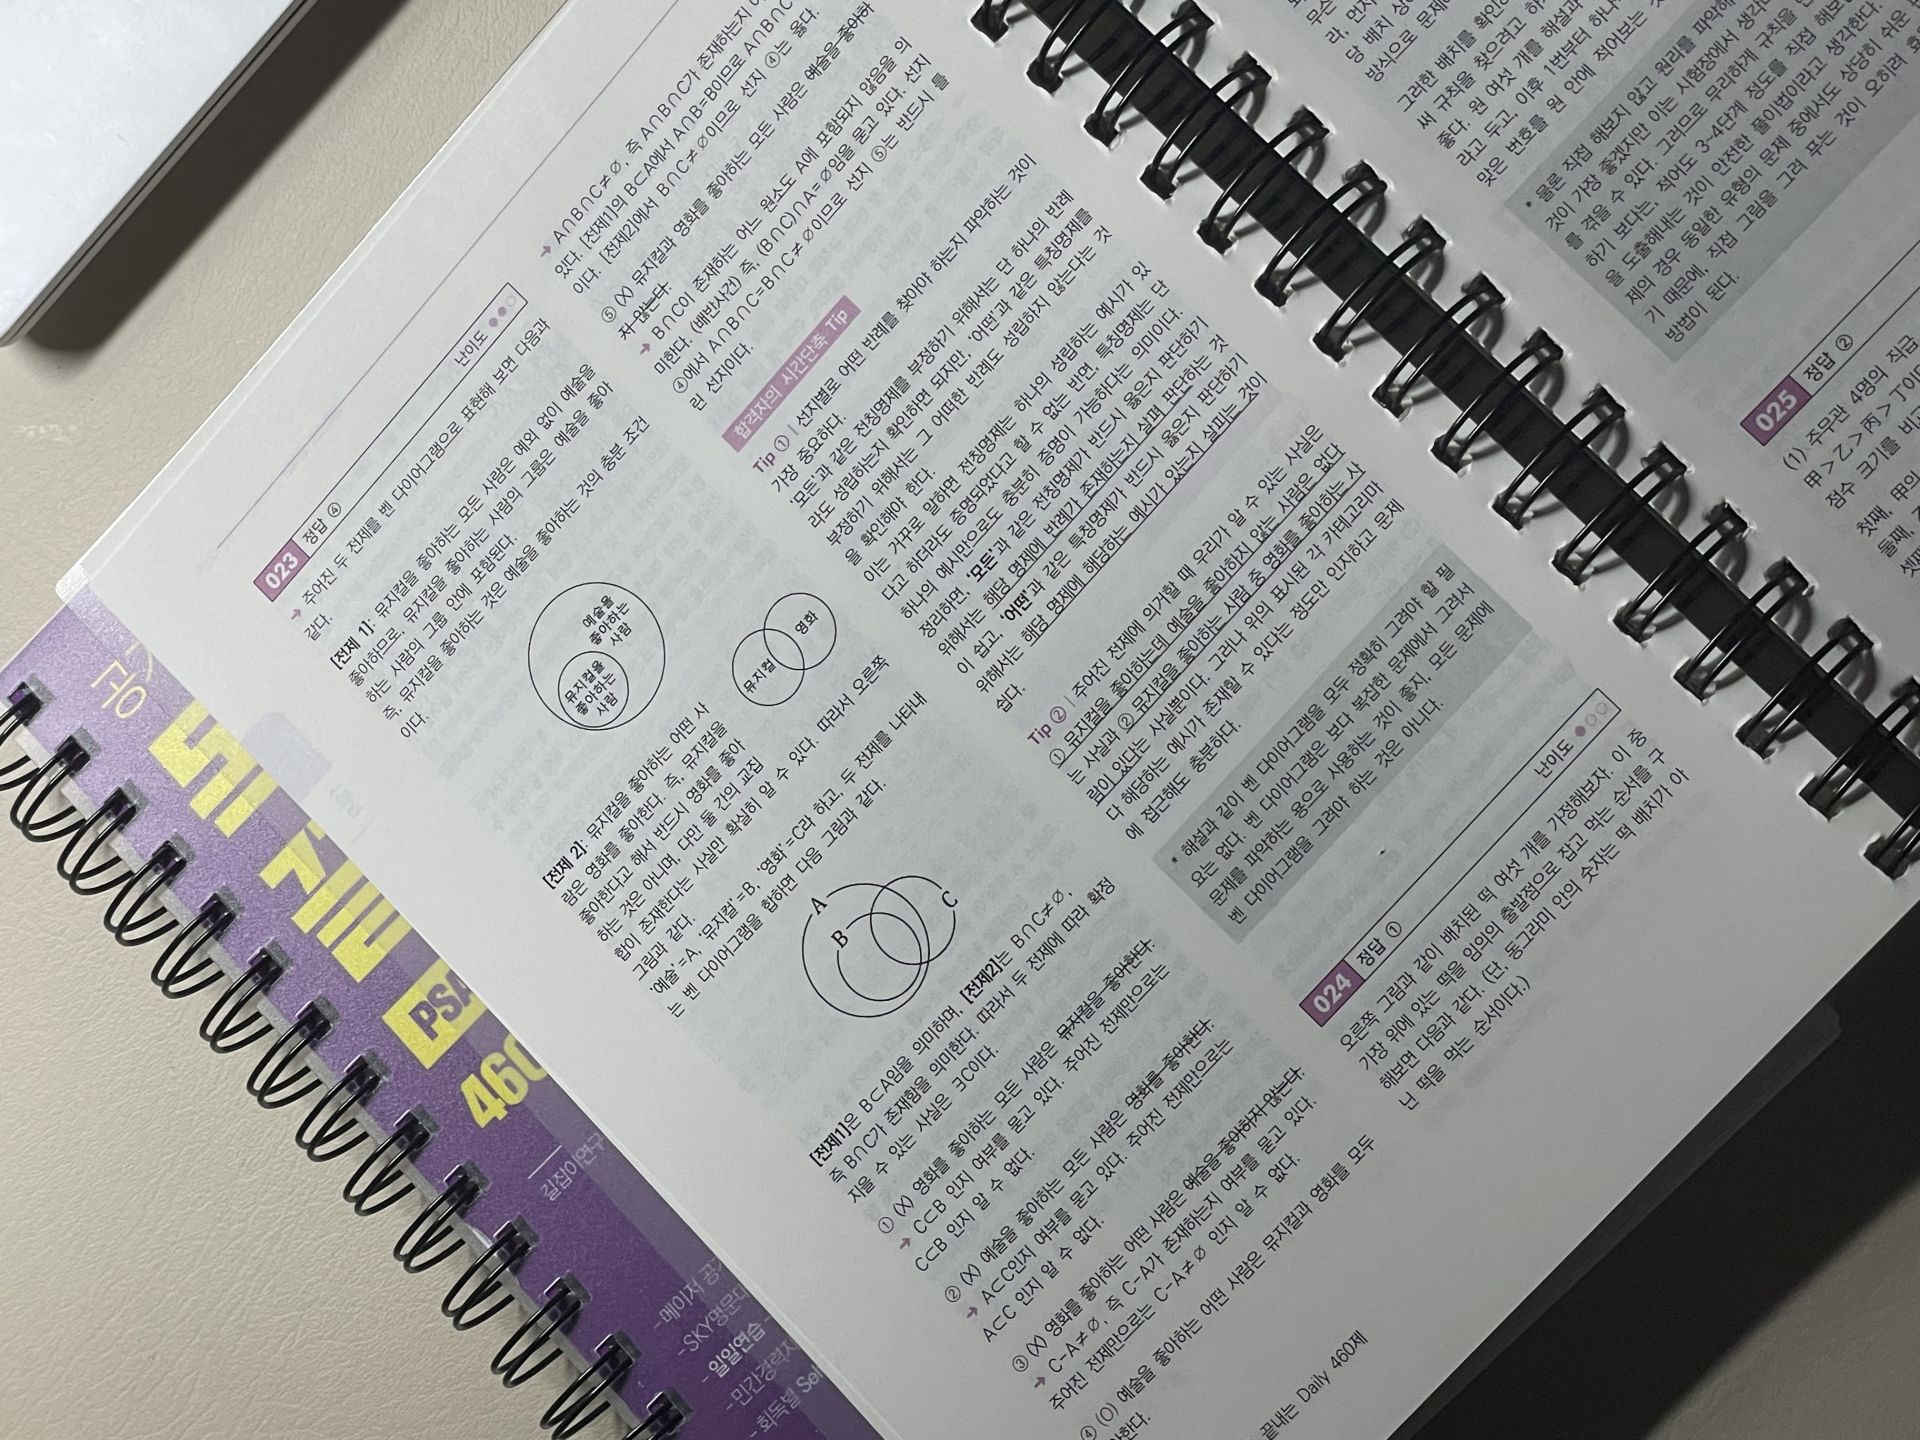 023 정답 ④ 난이도
➔ 주어진 두 전제를 벤 다이어그램으로 표현해 보면 다음과
같다.
[전제 1]: 뮤지컬을 좋아하는 모든 사람은 예외 없이 예술을
좋아하므로, 뮤지컬을 좋아하는 사람의 그룹은 예술을 좋아
하는 사람의 그룹 안에 포함된다.
즉, 뮤지컬을 좋아하는 것은 예술을 좋아하는 것의 충분 조건
이다.
예술을
좋아하는
사람
뮤지컬을
좋아하는
사람
[전제 2]: 뮤지컬을 좋아하는 어떤 사
람은 영화를 좋아한다. 즉, 뮤지컬을
좋아한다고 해서 반드시 영화를 좋아
하는 것은 아니며, 다만 둘 간의 교집
합이 존재한다는 사실만 확실히 알 수 있다. 따라서 오른쪽
그림과 같다.
뮤지컬
영화
'예술'=A, '뮤지컬'=B, '영화'=C라 하고, 두 전제를 나타내
는 벤 다이어그램을 합하면 다음 그림과 같다.
A
B
C
[전제1]은 B⊂A임을 의미하며, [전제2]는 B∩C≠∅,
즉 B∩C가 존재함을 의미한다. 따라서 두 전제에 따라 확정
지을 수 있는 사실은 ∃C이다.
① (X) 영화를 좋아하는 모든 사람은 뮤지컬을 좋아한다.
➔ C⊂B 인지 여부를 묻고 있다. 주어진 전제만으로는
C⊂B 인지 알 수 없다.
② (X) 예술을 좋아하는 모든 사람은 영화를 좋아한다.
➔ A⊂C인지 여부를 묻고 있다. 주어진 전제만으로는
A⊂C 인지 알 수 없다.
③ (X) 영화를 좋아하는 어떤 사람은 예술을 좋아하지 않는다.
➔ C-A≠∅, 즉 C-A가 존재하는지 여부를 묻고 있다.
주어진 전제만으로는 C-A≠∅ 인지 알 수 없다.
④ (O) 예술을 좋아하는 어떤 사람은 뮤지컬과 영화를 모두
➔ A∩B∩C≠∅, 즉 A∩B∩C가 존재하는지
있다. [전제1]의 B⊂A에서 A∩B=B이므로 A∩B∩C
이다. [전제2]에서 B∩C≠∅이므로 선지 ④는 옳다.
⑤ (X) 뮤지컬과 영화를 좋아하는 모든 사람은 예술을 좋아하
지 않는다.
➔ B∩C이 존재하는 어느 원소도 A에 포함되지 않음을 의
미한다. (배반사건) 즉, (B∩C)∩A=∅임을 묻고 있다. 선지
④에서 A∩B∩C=B∩C≠∅이므로 선지 ⑤는 반드시 틀
린 선지이다.
합격자의 시간단축 Tip
Tip ① | 선지별로 어떤 반례를 찾아야 하는지 파악하는 것이
가장 중요하다.
'모든'과 같은 전칭명제를 부정하기 위해서는 단 하나의 반례
라도 성립하는지 확인하면 되지만, '어떤'과 같은 특칭명제를
부정하기 위해서는 그 어떠한 반례도 성립하지 않는다는 것
을 확인해야 한다.
이는 거꾸로 말하면 전칭명제는 하나의 성립하는 예시가 있
다고 하더라도 증명되었다고 할 수 없는 반면, 특칭명제는 단
하나의 예시만으로도 충분히 증명이 가능하다는 의미이다.
정리하면, '모든'과 같은 전칭명제가 반드시 옳은지 판단하기
위해서는 해당 명제에 반례가 존재하는지 살펴 판단하는 것
이 쉽고, '어떤'과 같은 특칭명제가 반드시 옳은지 판단하기
위해서는 해당 명제에 해당하는 예시가 있는지 살피는 것이
쉽다.
Tip ② | 주어진 전제에 의거할 때 우리가 알 수 있는 사실은
① 뮤지컬을 좋아하는데 예술을 좋아하지 않는 사람은 없다
는 사실과 ② 뮤지컬을 좋아하는 사람 중 영화를 좋아하는 사
람이 있다는 사실뿐이다. 그러나 위의 표시된 각 카테고리마
다 해당하는 예시가 존재할 수 있다는 정도만 인지하고 문제
에 접근해도 충분하다.
* 해설과 같이 벤 다이어그램을 모두 정확히 그려야 할 필
요는 없다. 벤 다이어그램은 보다 복잡한 문제에서 그려서
문제를 파악하는 용으로 사용하는 것이 좋지, 모든 문제에
벤 다이어그램을 그려야 하는 것은 아니다.
024 정답 ① 난이도
오른쪽 그림과 같이 배치된 떡 여섯 개를 가정해보자. 이 중
가장 위에 있는 떡을 임의의 출발점으로 잡고 먹는 순서를 구
해보면 다음과 같다. (단, 동그라미 안의 숫자는 떡 배치가 아
닌 떡을 먹는 순서이다.)
끝내는 Daily 460제
그러한 배치를 찾으려고 하
써 규칙을
좋다. 원 여섯 개를 해설과
라고 두고, 이후 1번부터 하나
맞은 번호를 원 안에 적어보는
* 물론 직접 해보지 않고 원리를 파악해
것이 가장 좋겠지만 이는 시험장에서 생각
를 겪을 수 있다. 그러므로 무리하게 규칙을
하기 보다는, 적어도 3~4단계 정도를 직접 해보
을 도출해내는 것이 안전한 풀이법이라고 생각한다.
제의 경우 동일한 유형의 문제 중에서도 상당히 쉬운
기 때문에, 직접 그림을 그려 푸는 것이 오히려
방법이 된다.
025 정답 ②
(1) 주무관 4명의 직급
甲 > 乙 > 丙 > 丁이
점수 크기를 비교
첫째, 甲의
둘째,
PSA
460
길잡이연구
-메이저 공
-SKY명문
-일일연습
-민간경력자
-회독별 Sel